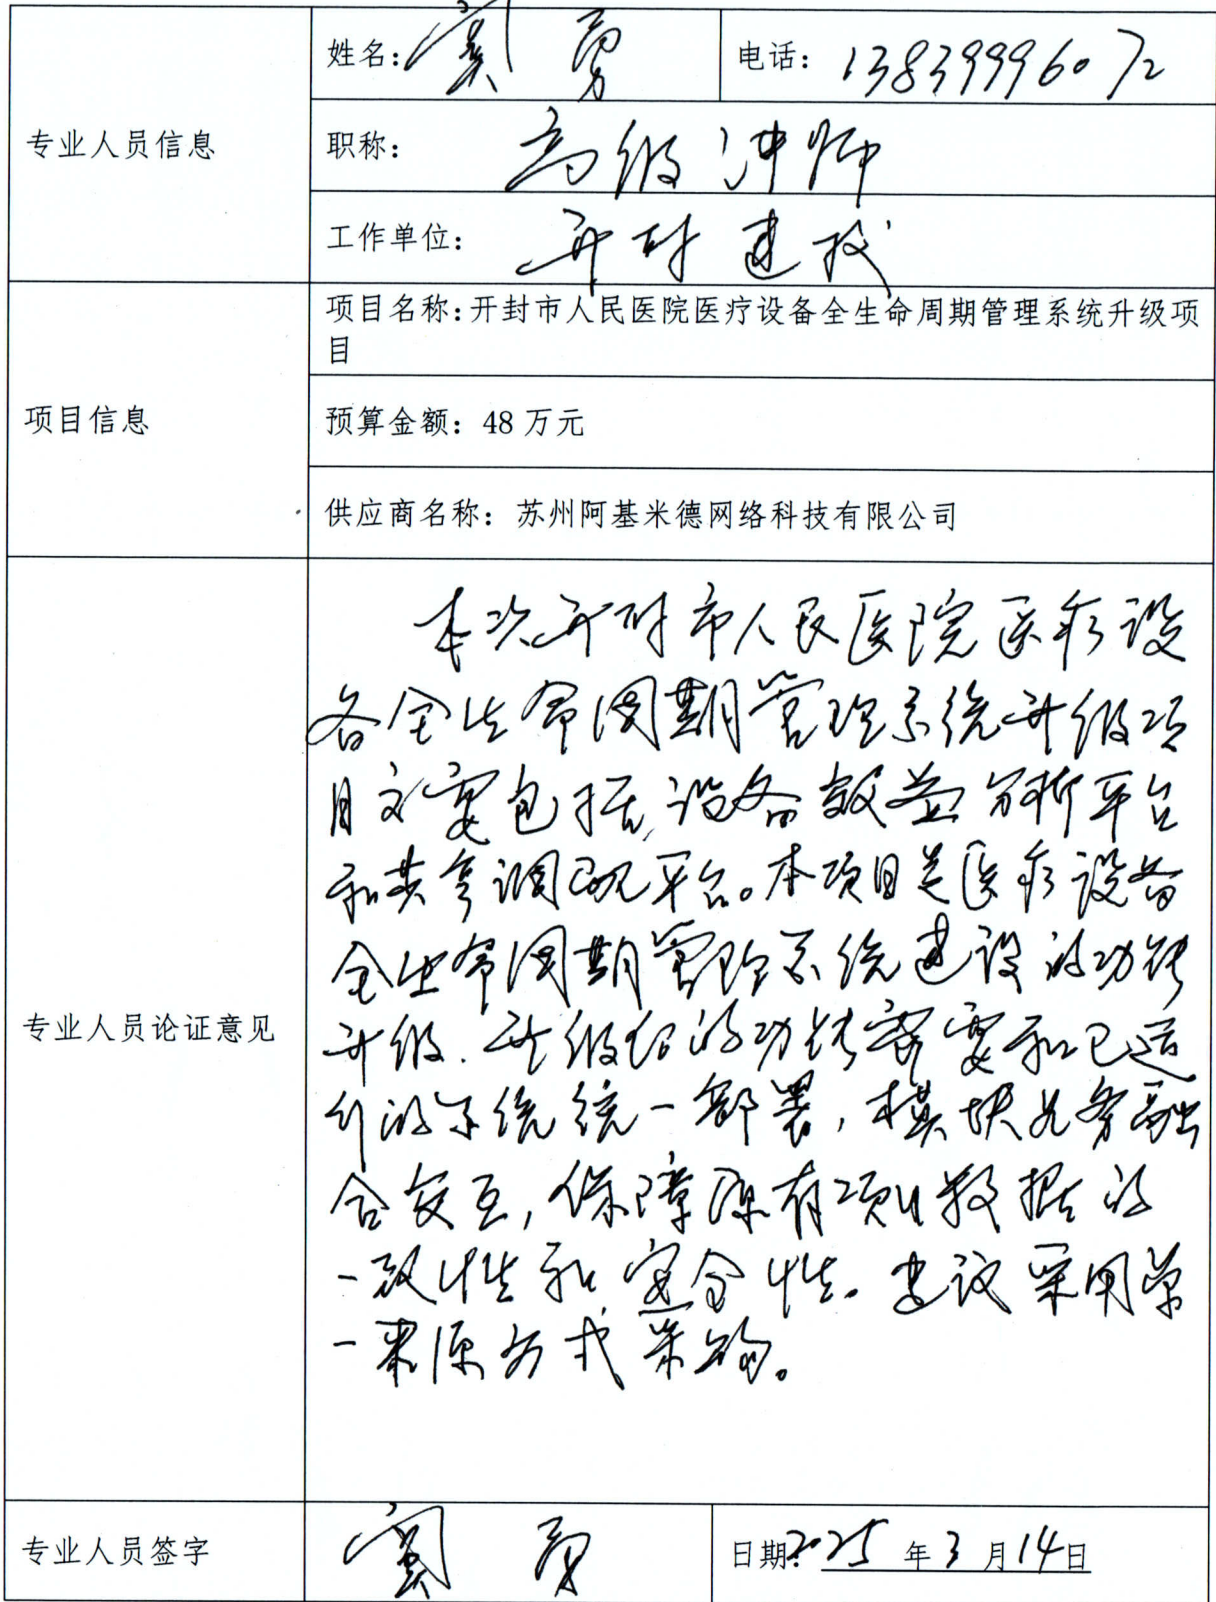 专业人员信息
姓名：窦勇
电话：13839996072
职称：
高级讲师
工作单位：
开封建校
项目信息
项目名称：开封市人民医院医疗设备全生命周期管理系统升级项
目
预算金额：48 万元
供应商名称：苏州阿基米德网络科技有限公司
专业人员论证意见
本次开封市人民医院医疗设
备全生命周期管理系统升级项
目主要包括设备效益分析平台
和共享调配平台。本项目是医疗设备
全生命周期管理系统建设的功能
升级.升级后的功能需要和已运
行的系统统一部署，模块业务融
合交互，保障原有项目数据的
一致性和安全性。建议采用单
一来源方式采购。
专业人员签字
窦勇
日期：2025 年 3 月 14 日